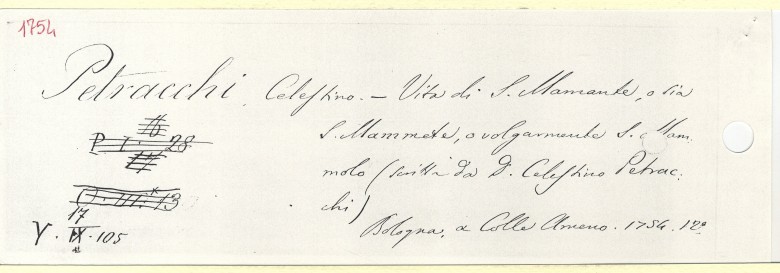 1754
Petracchi Celestino. — Vita di S. Mamante, o sia
S. Mammete, o volgarmente S. Mam-
molo (scritta da D. Celestino Petrac:
chi)
Bologna, a Colle Ameno. 1754. 12º
P. I. 28
13
17
V. IX. 105